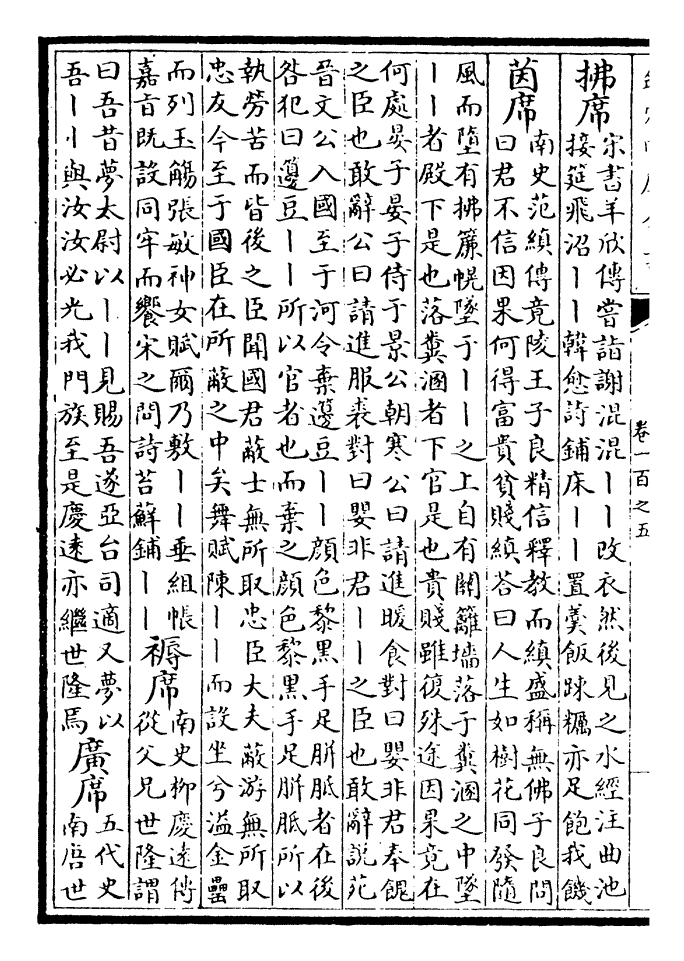 卷一百之五
拂席
宋書羊欣傳嘗詣謝混混丨丨改衣然後見之水經注曲池
接筵飛沼丨丨韓愈詩鋪床丨丨置羮飯踈糲亦足飽我饑
茵席
南史范縝傳竟陵王子良精信釋教而縝盛稱無佛子良問
曰君不信因果何得富貴貧賤縝荅曰人生如樹花同發隨
風而墮有拂簾幌墜于丨丨之上自有關籬墻落于糞溷之中墜
丨丨者殿下是也落糞溷者下官是也貴賤雖復殊途因果竟在
何處晏子晏子侍于景公朝寒公曰請進暖食對曰嬰非君奉餽
之臣也敢辭公曰請進服裘對曰嬰非君丨丨之臣也敢辭說苑
晉文公入國至于河令棄籩豆丨丨顔色黎黑手足胼胝者在後
咎犯曰籩豆丨丨所以官者也而棄之顔色黎黑手足胼胝所以
執勞苦而皆後之臣聞國君蔽士無所取忠臣大夫蔽游無所取
忠友今至于國臣在所蔽之中矣舞賦陳丨丨而設坐兮溢金罍
而列玉觴張敏神女賦爾乃敷丨丨垂組帳
嘉旨既設同牢而饗宋之問詩苔蘚鋪丨丨
褥席
南史柳慶逺傳
從父兄世隆謂
曰吾昔夢太尉以丨丨見賜吾遂亞台司適又夢以
吾丨丨與汝汝必光我門族至是慶逺亦繼世隆焉
廣席
五代史
南唐世